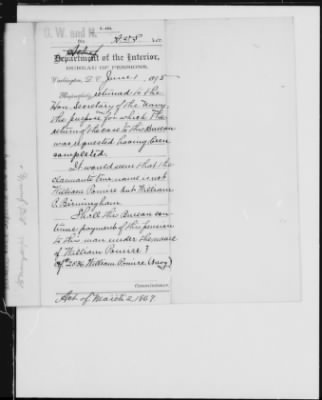 O. W. and N.
Department of the Interior,
BUREAU OF PENSIONS,
Washington, D. C., June 1, 1895
Respectfully returned to the
Hon. Secretary of the Navy,
the purpose for which the
return of the case to this Bureau
was requested having been
completed.
It would seem that the
claimants true name is not
William Pomire but William
P. Birmingham.
Shall this Bureau con
tinue payment of this pension
to this man under the name
of William Pomire?
William Pomire (Navy)
Commissioner.
Act of March 2 1867